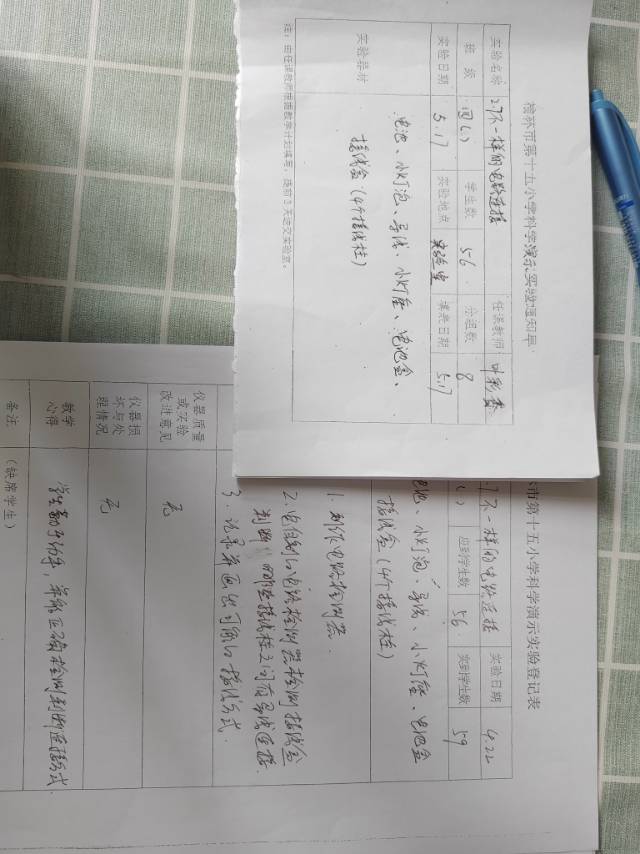 榆林市第十五小学科学演示实验通知单
实验名称 2.7不一样的电路连接 任课教师
班级 四(1) 学生数 56 分组数 8
实验日期 5.17 实验地点 实验室 填表日期 5.17
实验器材
电池、小灯泡、导线、小灯座、电池盒、
接线盒(4个接线柱)
注：由任课教师根据教学计划填写，提前3天送交实验室。
市第十五小学科学演示实验登记表
.7不一样的电路连接 实验日期 4.22
应到学生数 56 实到学生数 59
电池、小灯泡、导线、小灯座、电池盒
接线盒(4个接线柱)
1. 制作电路检测器.
2. 电路检测器检测接线盒
判断 哪些接线柱之间有导线连接.
3. 记录并画出可能的接线方式
仪器质量或实验改进意见 无
仪器损坏与处理情况 无
教学心得 学生动手 并能正确检测判断连接方式.
备注 (缺席学生)